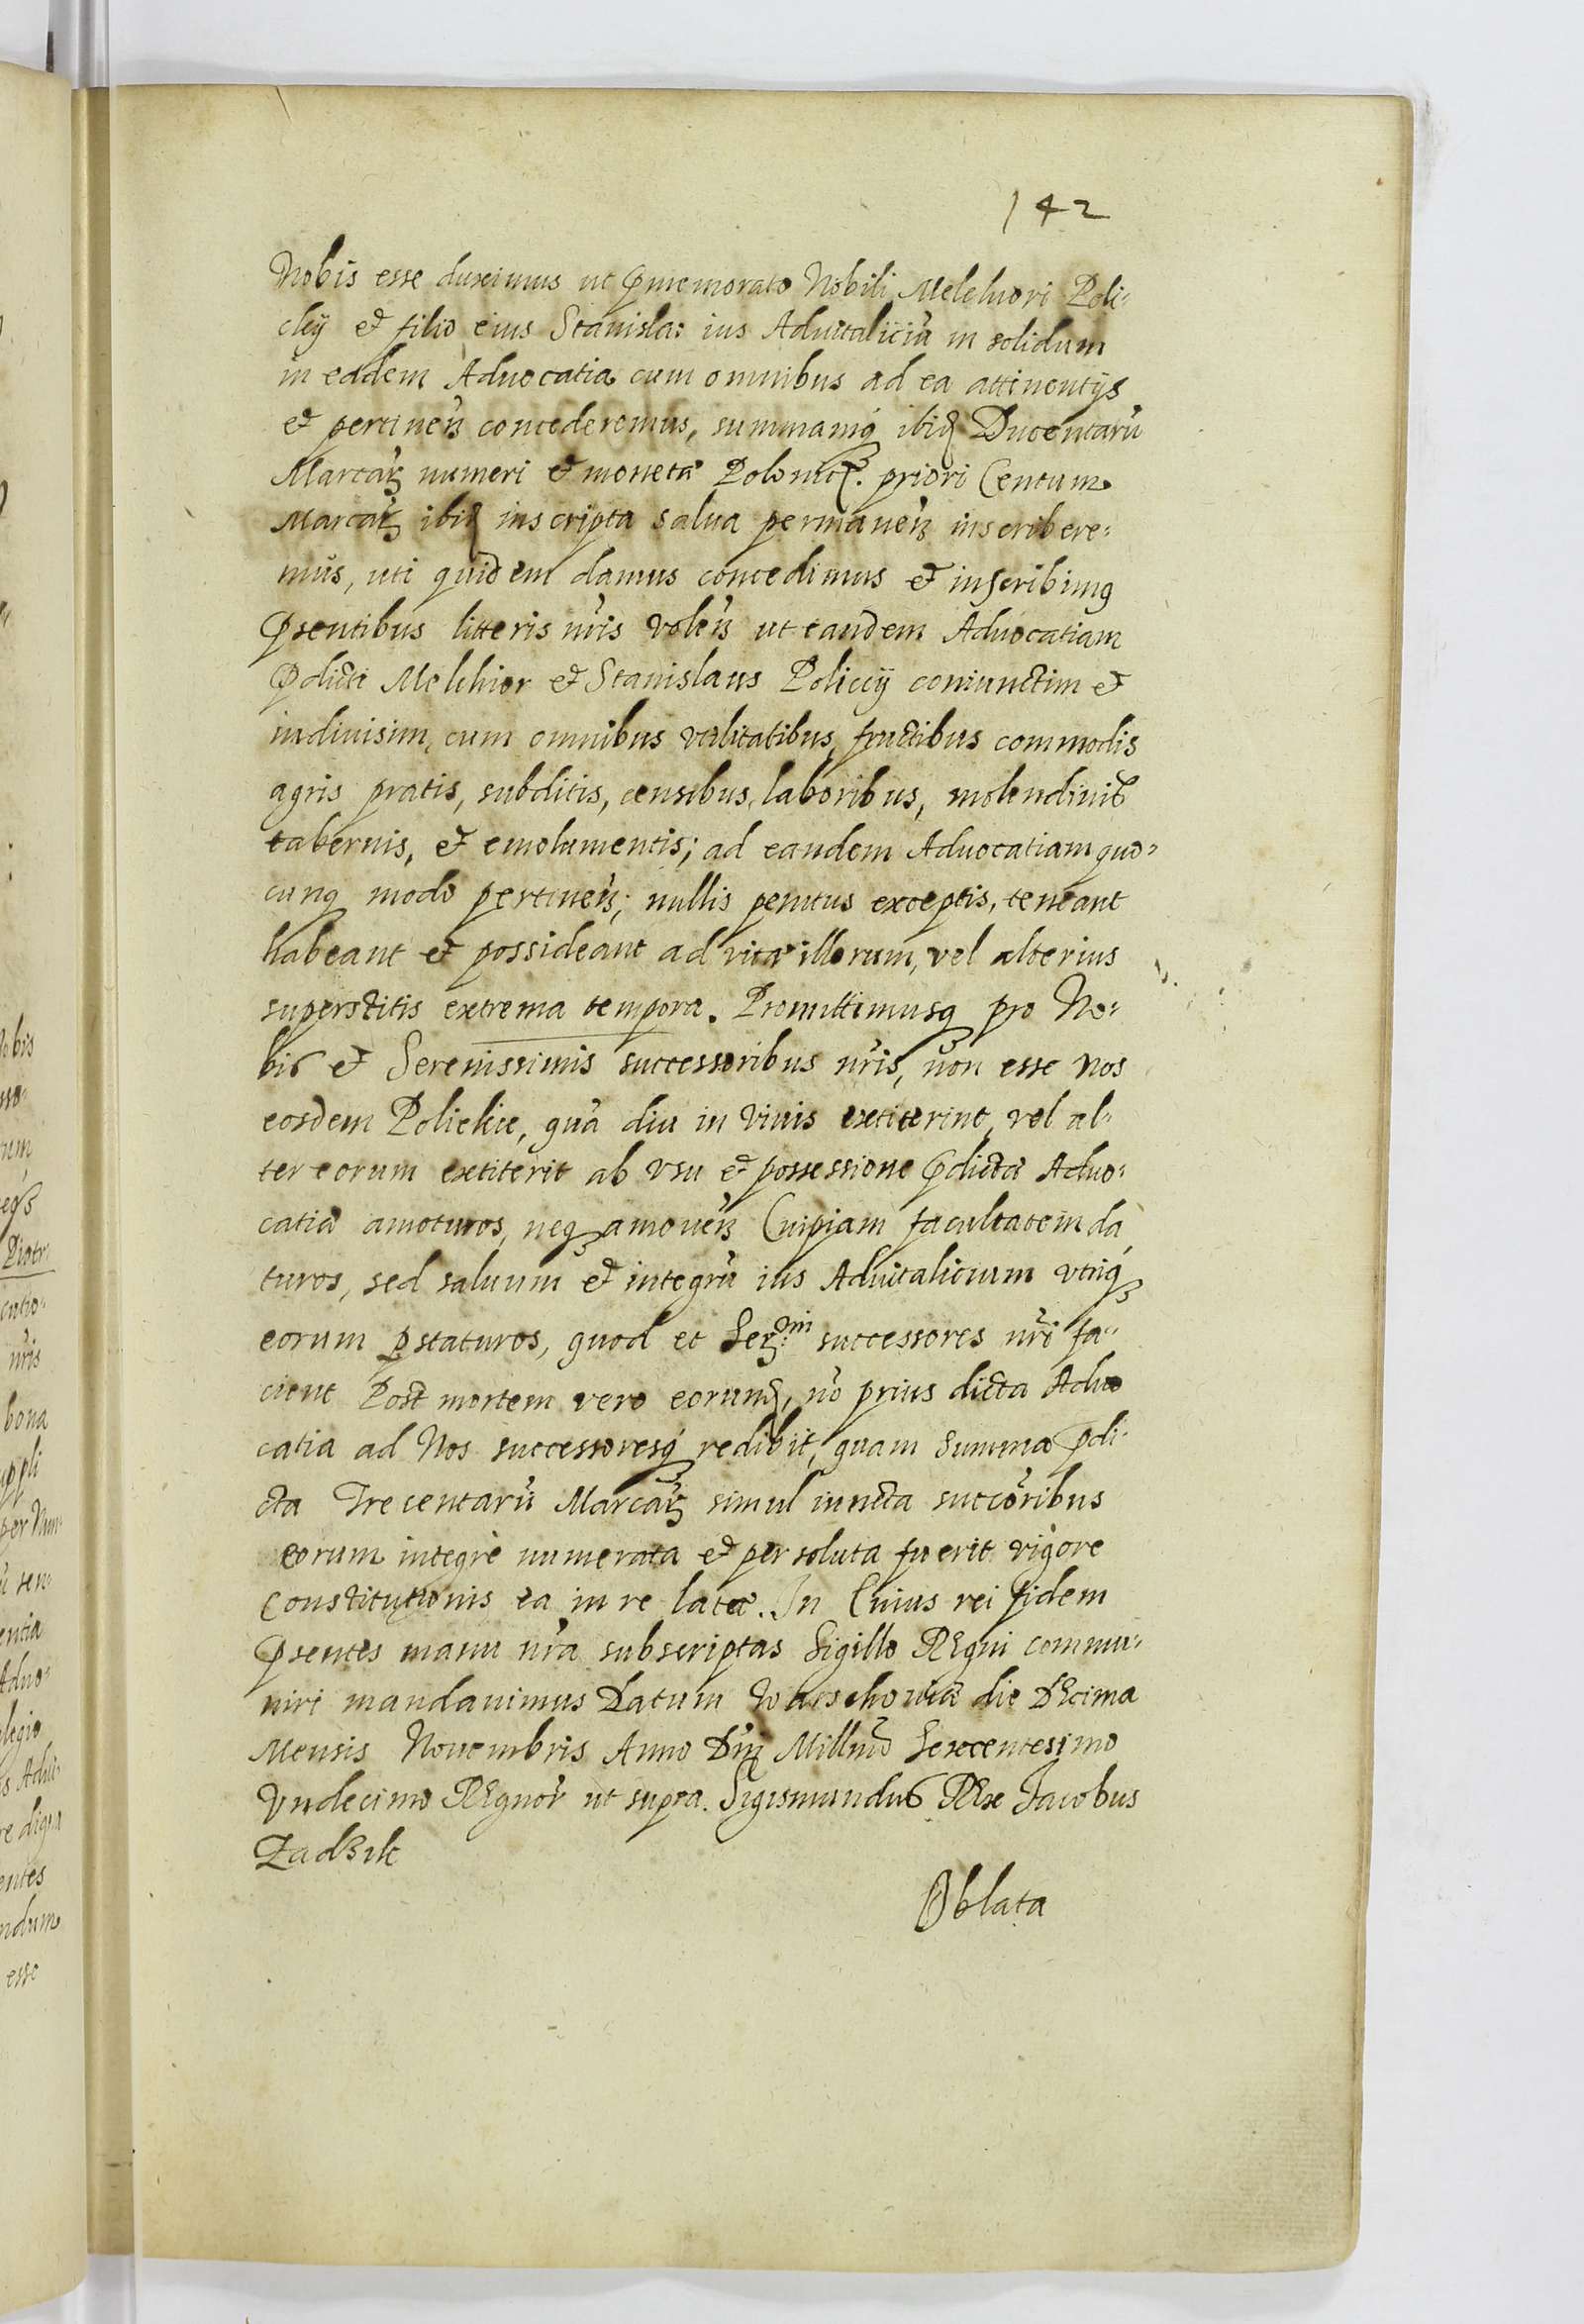 142
Nobis esse duximus ut p̄memorato Nobili Melchiori Poli-
ckÿ et filio eius Stanisla: ius Aduitaliciū in solidum
in eadem Aduocatia cum omnibus ad ea attinentÿs
et pertineñ concederemus, summamq́ ibid Ducentarū
Marcaꝝ numeri et monetæ Polonic. priori Centum
Marcaꝝ ibid inscripta salua permaneñ inscribere-
mus, uti quidem damus concedimus et inscribimꝰ
p̄sentibus litteris nr̃is voleñ ut eandem Aduocatiam
p̄dicti Melchior et Stanislaus Policcÿ coniunctim et
indiuisim, cum omnibus vtilitatibus, fructibus commodis
agris pratis, subditis, censibus, laboribus, molendinis
tabernis, et emolumentis; ad eandem Aduocatiam quo-
cunq modo pertineñ; nullis penitus exceptis, teneant
habeant et possideant ad vitæ illorum, vel alterius
superstitis extrema tempora. Promittimusq pro No-
bis et Serenissimis successoribus nr̃is, non esse nos
eosdem Polickie, quā diu in viuis extiterint, vel al-
ter eorum extiterit ab vsu et possessione p̄dictæ Aduo-
catiæ amoturos, neqꝫ amoueñ Cuipiam facultatem da
turos, sed saluum et integrū ius Aduitalicium vtriqꝫ
eorum p̄staturos, quod et Ser:mi successores nr̃i fa-
cient Post mortem vero eorund, nō prius dicta Aduo
catia ad Nos successoresq́ redibit, quam Summa p̄di-
cta Trecentarū Marcaꝝ simul iuncta succõribus
eorum integrè numerata et persoluta fuerit vigore
Constitutionis ea in re latæ. In Cuius rei fidem
p̄sentes manu nr̃a subscriptas Sigillo Regni commu-
niri mandauimus Datum Warschouiæ die Decima
Mensis Nouembris Anno Dñi Millmo Sexcentesimo
Vndecimo Regnor̃ ut supra. Sigismundus Rex Jacobus
Zadzik
Oblata